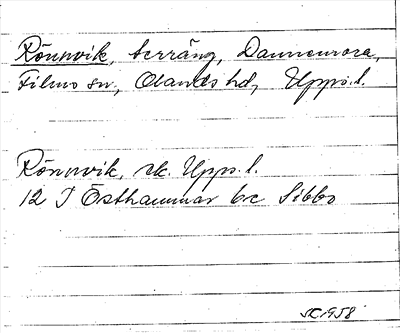 Rönnvik, terräng, Dannemora,
Films sn, Olands hd, Upps. l.
Rönnvik, ek. Upps. l.
12 I Östhammar bc Sibbo
SC 1958